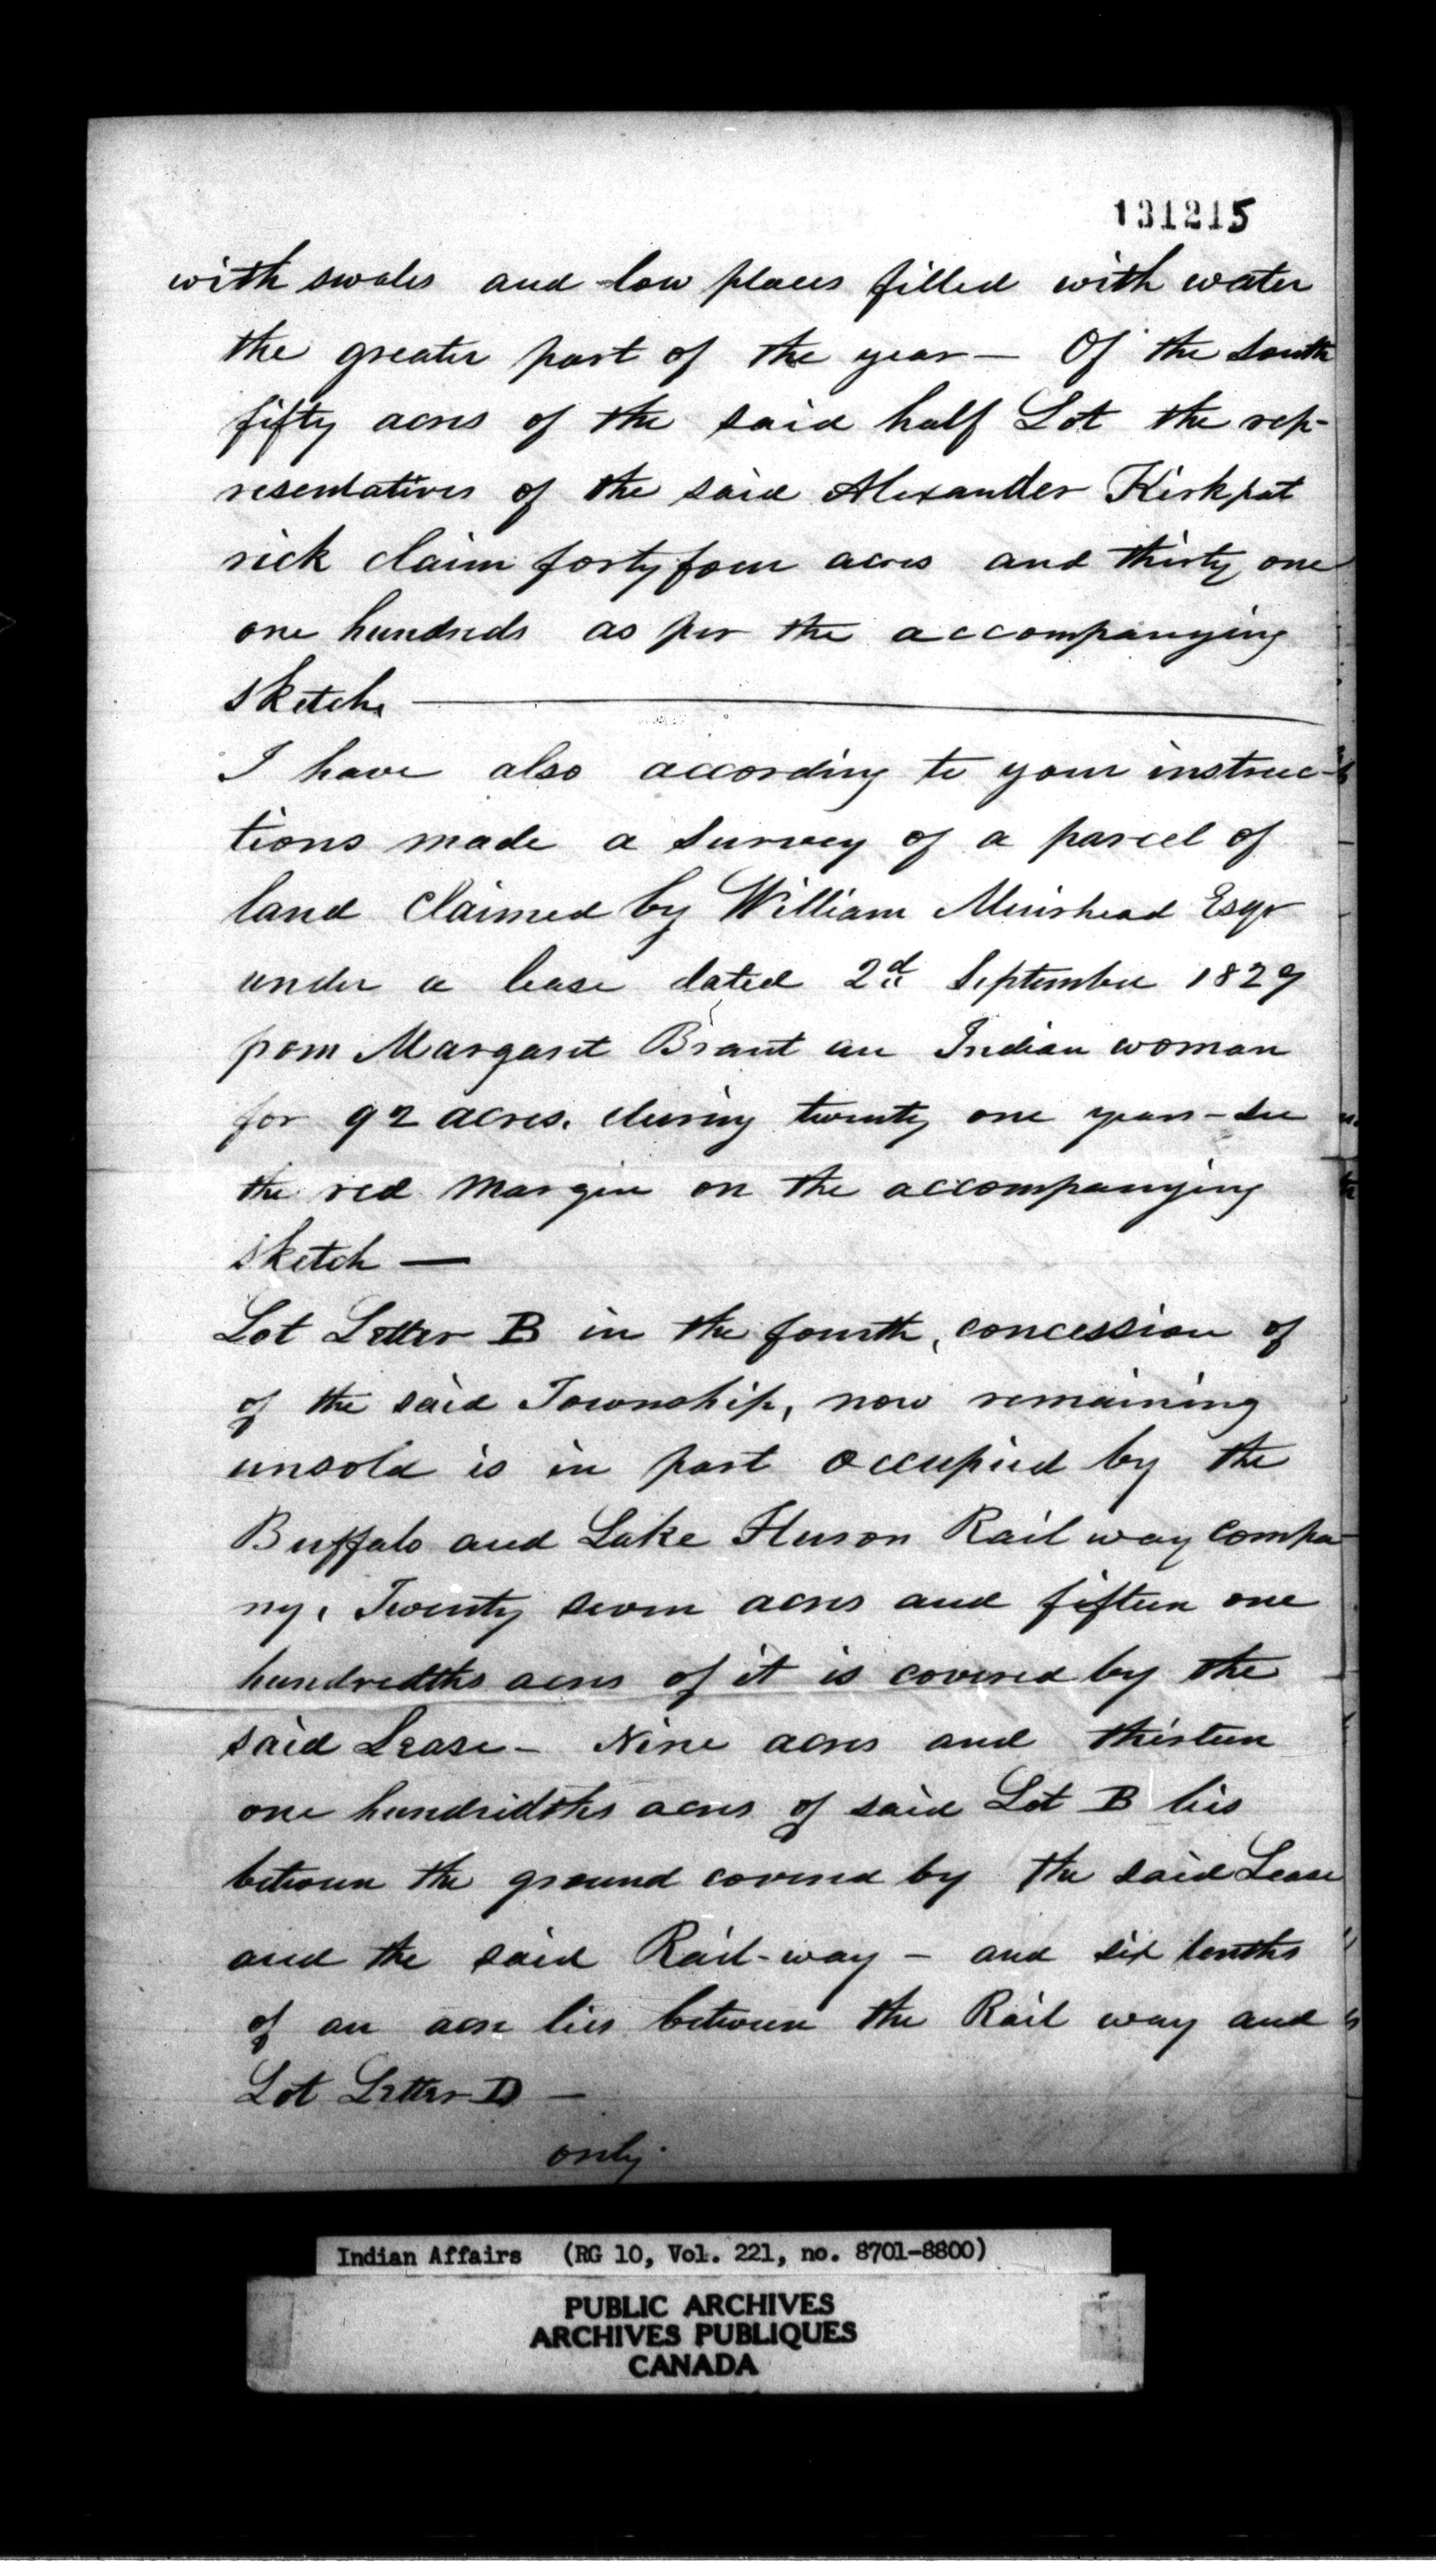 131215
with swales and low places filled with water
the greater part of the year — Of the South
fifty acres of the said half Lot the rep-
resentatives of the said Alexander Kirkpat
rick claim forty four acres and thirty one
one hundreds as per the accompanying
sketch.
I have also according to your instruc-
tions made a survey of a parcel of
land claimed by William Muirhead Esqr
under a lease dated 2d September 1829
from Margaret Brant an Indian woman
for 92 acres. during twenty one years - see
the red margin on the accompanying
sketch —
Lot Letter B in the fourth, concession of
of the said Township, now remaining
unsold is in part occupied by the
Buffalo and Lake Huron Rail way compa
ny, Twenty seven acres and fifteen one
hundredths acres of it is covered by the
said Lease - Nine acres and thirteen
one hundridths acres of said Lot B lies
between the ground covered by the said Lease
and the said Rail-way — and six tenths
of an acre lies between the Rail way and
Lot Letter D —
only
Indian Affairs (RG 10, Vol. 221, no. 8701-8800)
PUBLIC ARCHIVES
ARCHIVES PUBLIQUES
CANADA